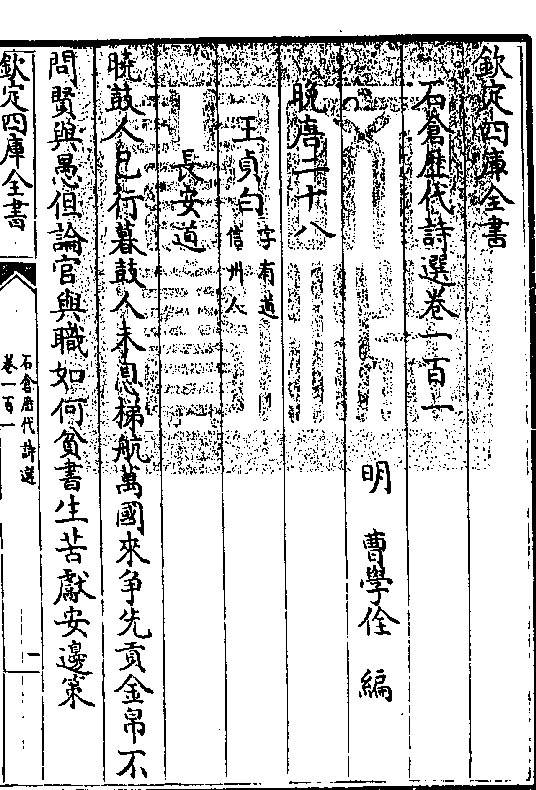 欽定四庫全書
石倉歷代詩選卷一百一
明 曹學佺 編
晚唐二十八
王貞白
字有道
信州人
長安道
曉鼓人已行暮鼓人未息梯航萬國來爭先貢金帛不
問賢與愚但論官與職如何貧書生苦獻安邊策
欽定四庫全書
石倉歷代詩選
卷一百一
一